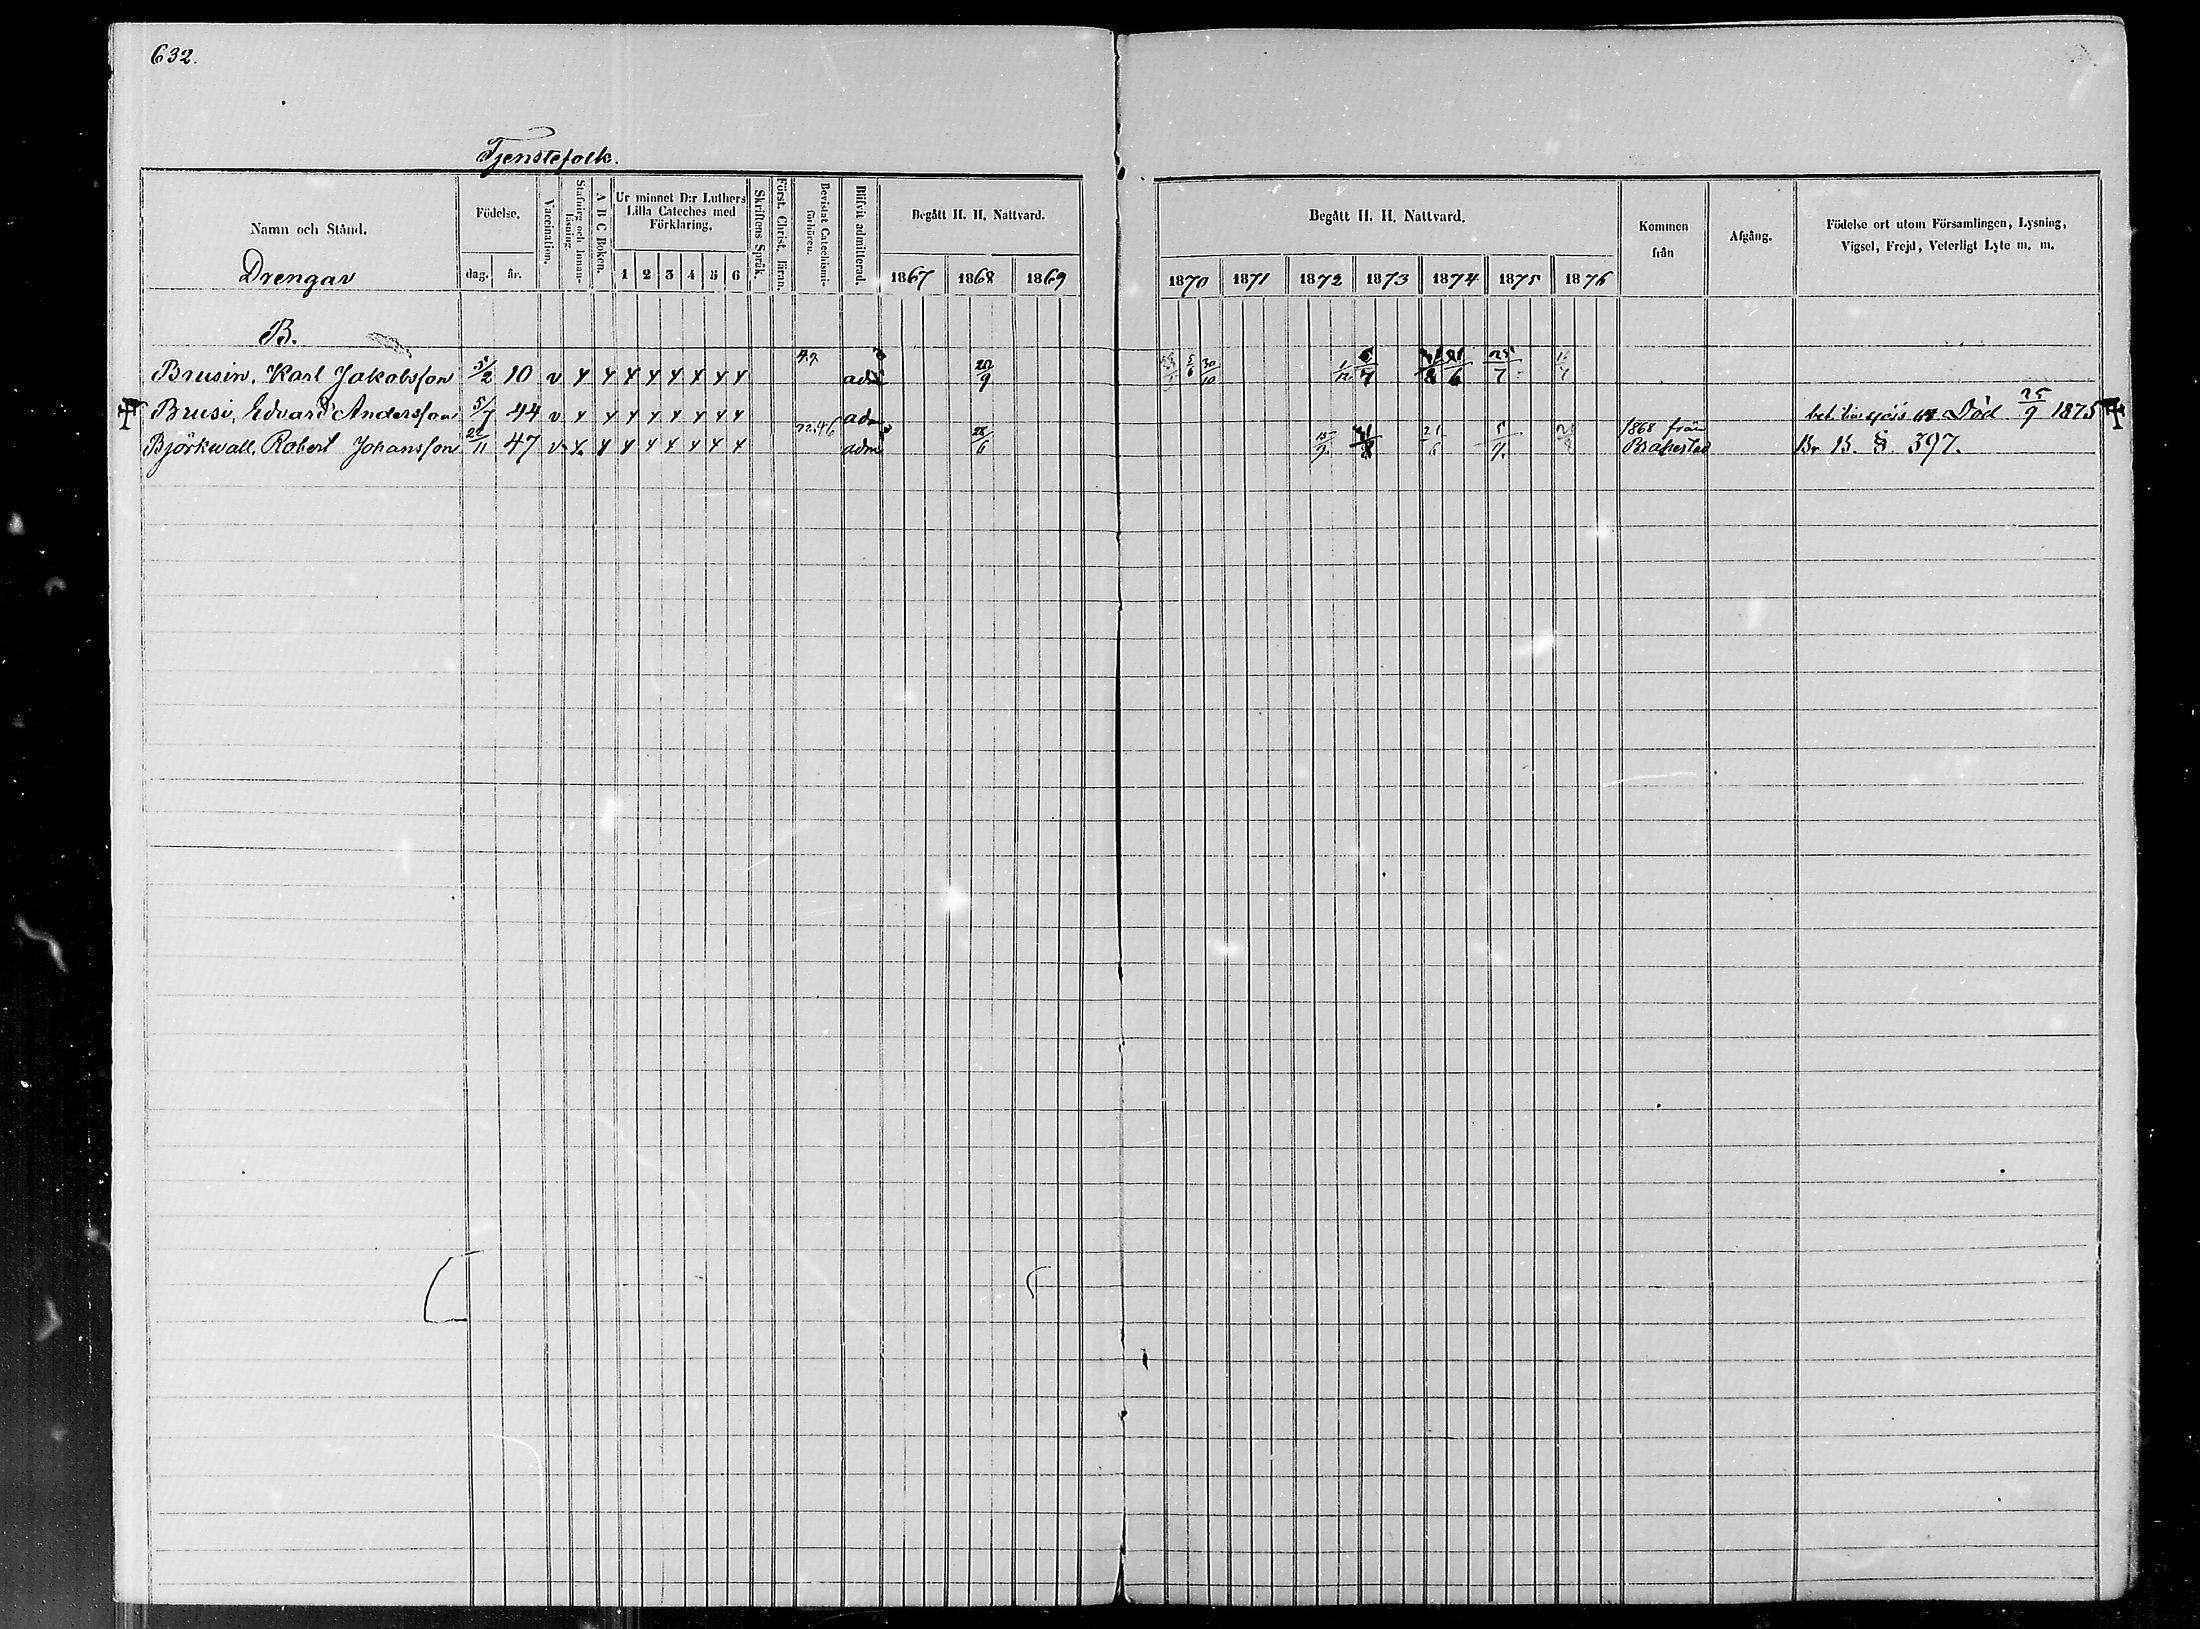 632.
Tjenstefolk.
Namn och Stånd.
Drengar
Födelse.
dag. år.
Vaccination.
Stafning och Innan-
läsning.
A B C Boken.
Ur minnet D:r Luthers
Lilla Cateches med
Förklaring.
1 2 3 4 5 6
Skriftens Språk.
Först. Christ. lära.
Bevistat Catechismi-
förhören.
Blifvit admitterad.
Begått H. H. Nattvard.
1867 1868 1869
Begått H. H. Nattvard.
1870 1871 1872 1873 1874 1875 1876
Kommen
från
Afgång.
Födelse ort utom Församlingen, Lysning,
Vigsel, Frejd, Veterligt Lyte m. m.
B.
Brusin, Karl Jakobsson 5/2 10 v x x x x x x x x adm 20/9 5/6 30/10 1/12 6/7 21/6 25/7
Brusi, Edvard Andersson 5/7 44 v x x x x x x x x adm Död 25/9 1875
Björkwall, Robert Johansson 22/11 47 v x x x x x x x x 72.76 adm 28/6 15/9 1868 från
Brahestad Br B. § 397.